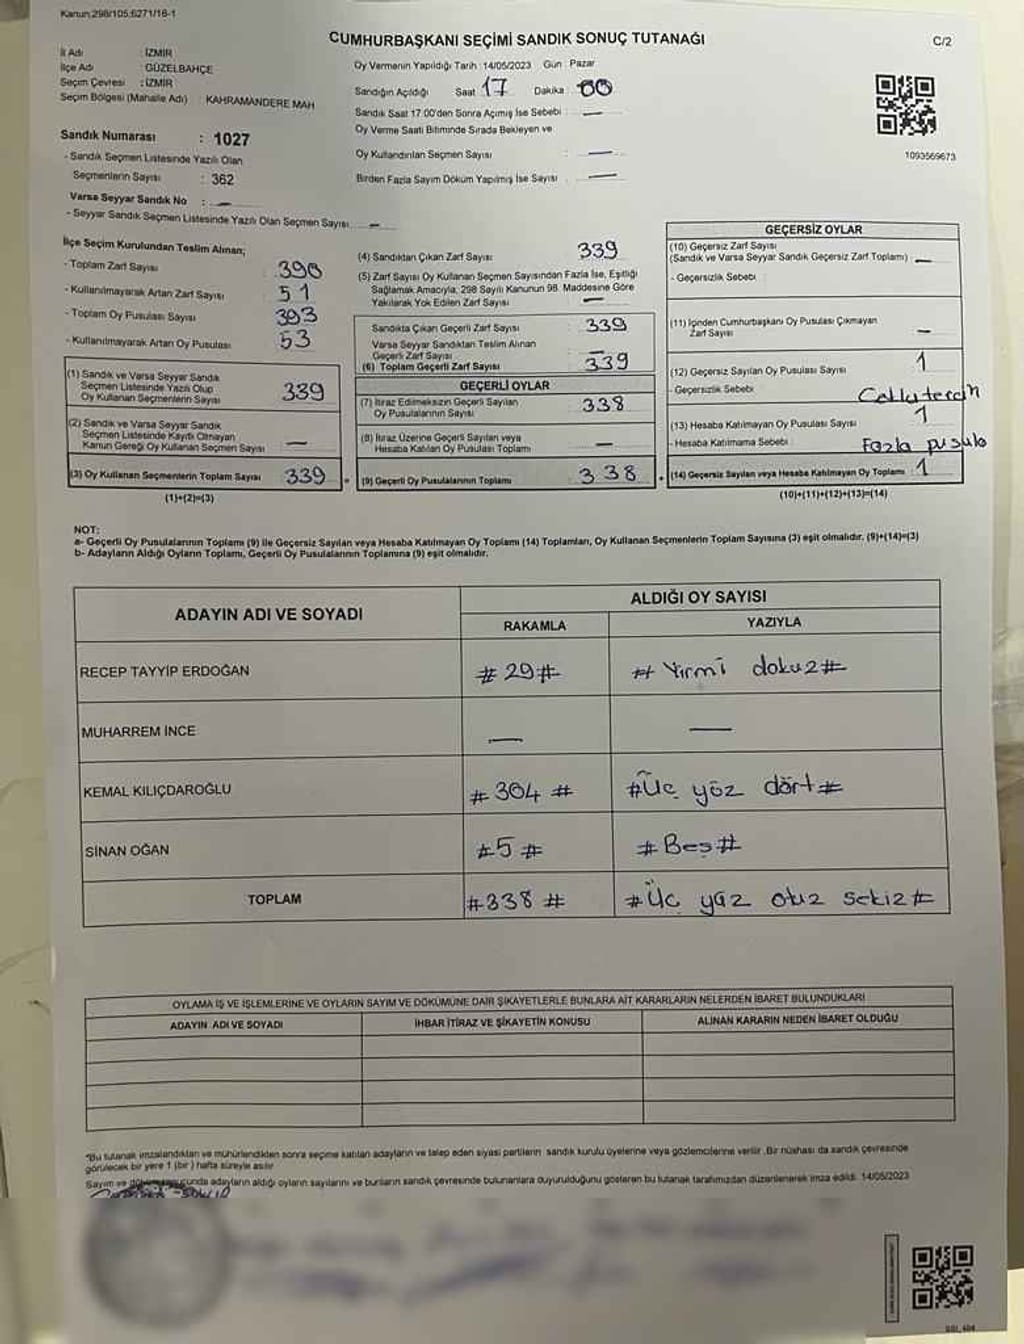 Kanun:298/105;6271/16-1
CUMHURBAŞKANI SEÇİMİ SANDIK SONUÇ TUTANAĞI
C/2
İl Adı : İZMİR
İlçe Adı : GÜZELBAHÇE
Seçim Çevresi : İZMİR
Seçim Bölgesi (Mahalle Adı) : KAHRAMANDERE MAH
Sandık Numarası : 1027
- Sandık Seçmen Listesinde Yazılı Olan
Seçmenlerin Sayısı : 362
Varsa Seyyar Sandık No : —
- Seyyar Sandık Seçmen Listesinde Yazılı Olan Seçmen Sayısı: —
Oy Vermenin Yapıldığı Tarih : 14/05/2023 Gün : Pazar
Sandığın Açıldığı Saat 17 Dakika : 00
Sandık Saat 17:00'den Sonra Açılmış İse Sebebi : —
Oy Verme Saati Bitiminde Sırada Bekleyen ve
Oy Kullandırılan Seçmen Sayısı : —
Birden Fazla Sayım Döküm Yapılmış İse Sayısı : —
1093569673
İlçe Seçim Kurulundan Teslim Alınan;
- Toplam Zarf Sayısı 390
- Kullanılmayarak Artan Zarf Sayısı 51
- Toplam Oy Pusulası Sayısı 393
- Kullanılmayarak Artan Oy Pusulası 53
(1) Sandık ve Varsa Seyyar Sandık
Seçmen Listesinde Yazılı Olup
Oy Kullanan Seçmenlerin Sayısı 339
(2) Sandık ve Varsa Seyyar Sandık
Seçmen Listesinde Kayıtlı Olmayan
Kanun Gereği Oy Kullanan Seçmen Sayısı —
(3) Oy Kullanan Seçmenlerin Toplam Sayısı 339
(1)+(2)=(3)
(4) Sandıktan Çıkan Zarf Sayısı: 339
(5) Zarf Sayısı Oy Kullanan Seçmen Sayısından Fazla İse, Eşitliği
Sağlamak Amacıyla, 298 Sayılı Kanunun 98. Maddesine Göre
Yakılarak Yok Edilen Zarf Sayısı —
Sandıkta Çıkan Geçerli Zarf Sayısı 339
Varsa Seyyar Sandıktan Teslim Alınan
Geçerli Zarf Sayısı —
(6) Toplam Geçerli Zarf Sayısı 339
GEÇERLİ OYLAR
(7) İtiraz Edilmeksizin Geçerli Sayılan
Oy Pusulalarının Sayısı 338
(8) İtiraz Üzerine Geçerli Sayılan veya
Hesaba Katılan Oy Pusulası Toplamı —
(9) Geçerli Oy Pusulalarının Toplamı 338
GEÇERSİZ OYLAR
(10) Geçersiz Zarf Sayısı
(Sandık ve Varsa Seyyar Sandık Geçersiz Zarf Toplamı) : —
- Geçersizlik Sebebi :
(11) İçinden Cumhurbaşkanı Oy Pusulası Çıkmayan
Zarf Sayısı —
(12) Geçersiz Sayılan Oy Pusulası Sayısı 1
- Geçersizlik Sebebi :
(13) Hesaba Katılmayan Oy Pusulası Sayısı 1
- Hesaba Katılmama Sebebi : Fazla pusula
(14) Geçersiz Sayılan veya Hesaba Katılmayan Oy Toplamı 1
(10)+(11)+(12)+(13)=(14)
NOT:
a- Geçerli Oy Pusulalarının Toplamı (9) ile Geçersiz Sayılan veya Hesaba Katılmayan Oy Toplamı (14) Toplamları, Oy Kullanan Seçmenlerin Toplam Sayısına (3) eşit olmalıdır. (9)+(14)=(3)
b- Adayların Aldığı Oyların Toplamı, Geçerli Oy Pusulalarının Toplamına (9) eşit olmalıdır.
ADAYIN ADI VE SOYADI ALDIĞI OY SAYISI
RAKAMLA YAZIYLA
RECEP TAYYİP ERDOĞAN #29# # Yirmi dokuz#
MUHARREM İNCE — —
KEMAL KILIÇDAROĞLU #304# #Üç yüz dört#
SİNAN OĞAN #5# #Beş#
TOPLAM #338# #Üç yüz otuz sekiz#
OYLAMA İŞ VE İŞLEMLERİNE VE OYLARIN SAYIM VE DÖKÜMÜNE DAİR ŞİKAYETLERLE BUNLARA AİT KARARLARIN NELERDEN İBARET BULUNDUKLARI
ADAYIN ADI VE SOYADI İHBAR İTİRAZ VE ŞİKAYETİN KONUSU ALINAN KARARIN NEDEN İBARET OLDUĞU
*Bu tutanak imzalandıktan ve mühürlendikten sonra seçime katılan adayların ve talep eden siyasi partilerin sandık kurulu üyelerine veya gözlemcilerine verilir. Bir nüshası da sandık çevresinde
görülecek bir yere 1 (bir) hafta süreyle asılır.
Sayım ve adayların aldığı oyların sayılarını ve bunların sandık çevresinde bulunanlara duyurulduğunu gösteren bu tutanak tarafımızdan düzenlenerek imza edildi. 14/05/2023